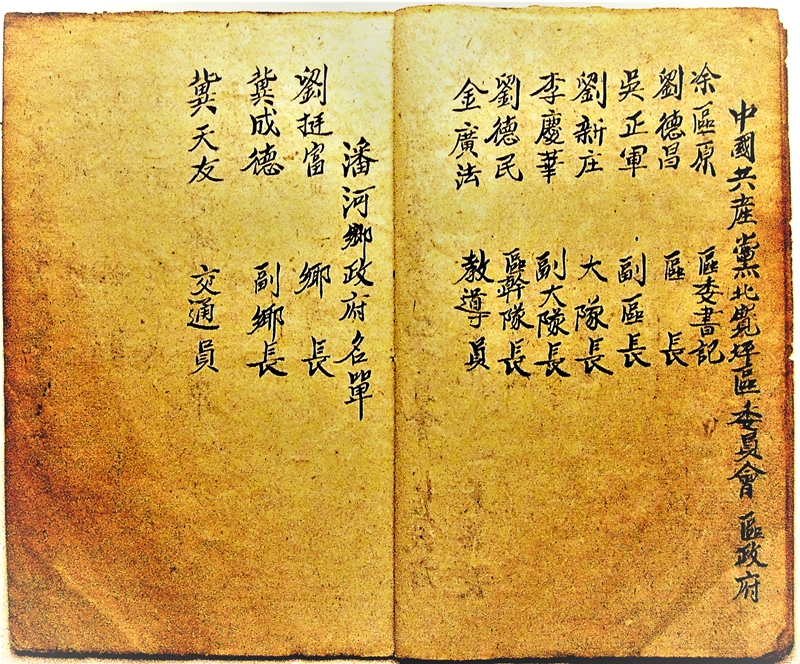 中國共産黨北寬坪區委員會 區政府
凃區原 區委書記
劉德昌 區長
吳正軍 副區長
劉新庄 大隊長
李慶華 副大隊長
劉德民 區幹隊長
金廣法 教導員
潘河鄉政府名單
劉挺富 鄉長
龔成德 副鄉長
冀天友 交通員